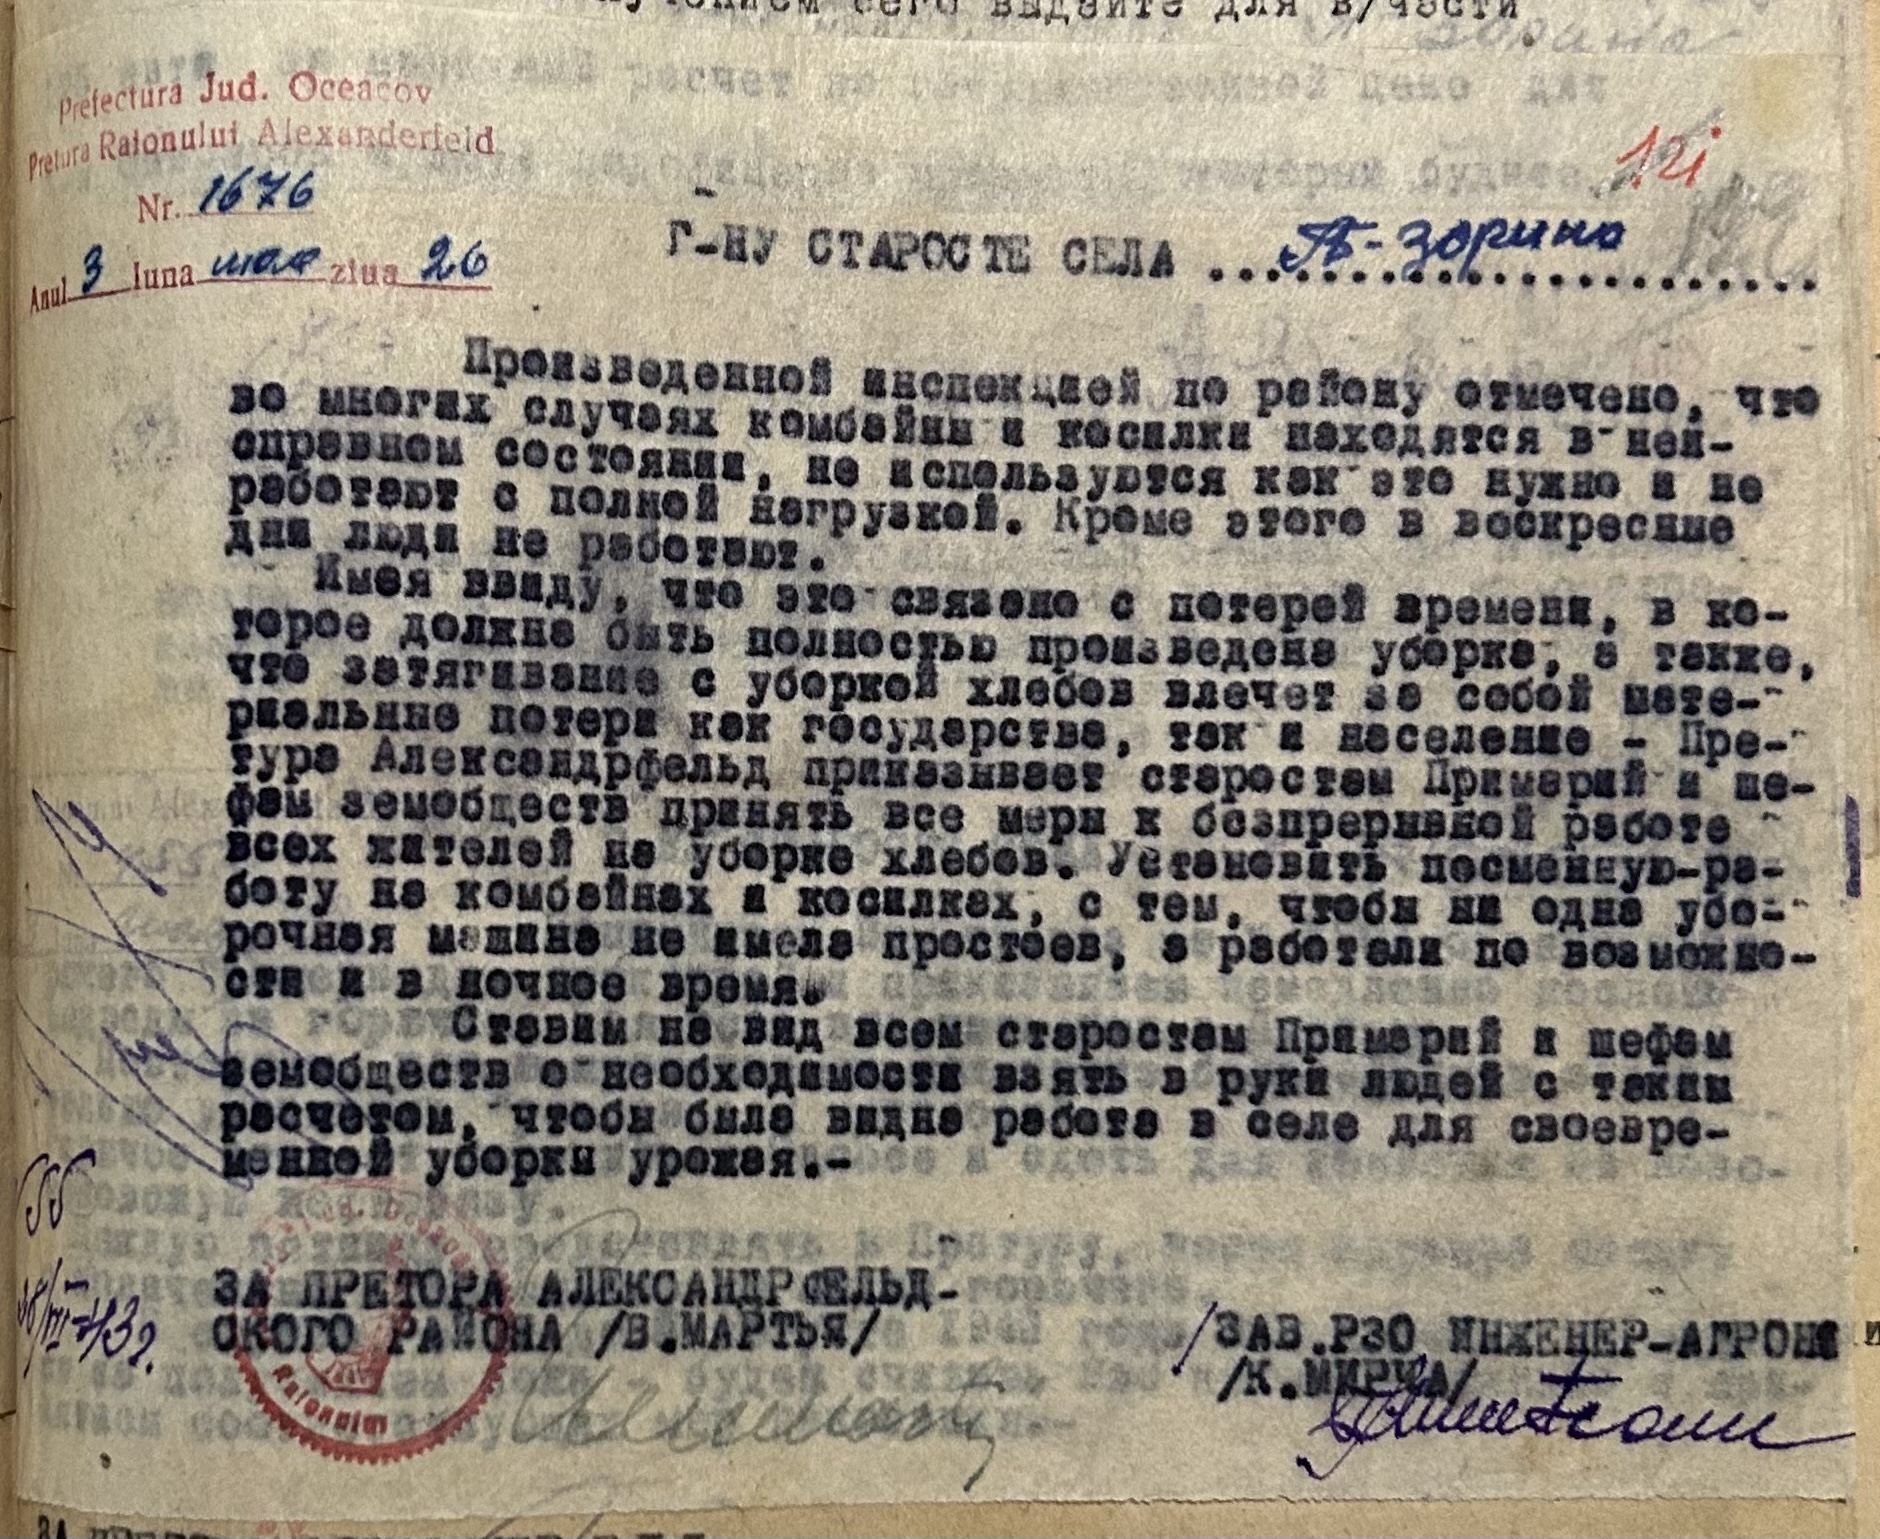 сего выдайте для в/части
Prefectura Jud. Oceacov
Pretura Raionului Alexanderfeld
Nr. 1676
Anul 3 luna мая ziua 26
121
Г-НУ СТАРОСТЕ СЕЛА ....-Зорино....
Произведенной инспекцией по району отмечено, что
во многих случаях комбайны и косилки находятся в неи-
справном состоянии, не используются как это нужно и не
работают с полной нагрузкой. Кроме этого в воскресние
дни люди не работают.
Имея ввиду, что это связано с потерей времени, в ко-
торое должна быть полностью произведена уборка, а также,
что затягивание с уборкой хлебов влечет за собой мате-
риальные потери как государства, так и населению - Пре-
тура Александрфельд приказывает старостам Примарий и ше-
фам земобществ принять все меры к безпрерывной работе
всех жителей на уборке хлебов. Установить посменную-ра-
боту на комбайнах и косилках, с тем, чтобы ни одна убо-
рочная машина не имела простоев, а работали по возможно-
сти и в ночное время.
Ставим на вид всем старостам Примарий и шефам
земобществ о необходимости взять в руки людей с таким
расчетом, чтобы была видна работа в селе для своевре-
менной уборки урожая.-
ЗА ПРЕТОРА АЛЕКСАНДРФЕЛЬД-
СКОГО РАЙОНА /В.МАРТЬЯ/
/ЗАВ.РЗО ИНЖЕНЕР-АГРОНОМ
/К.МИРЧА/
Raionului